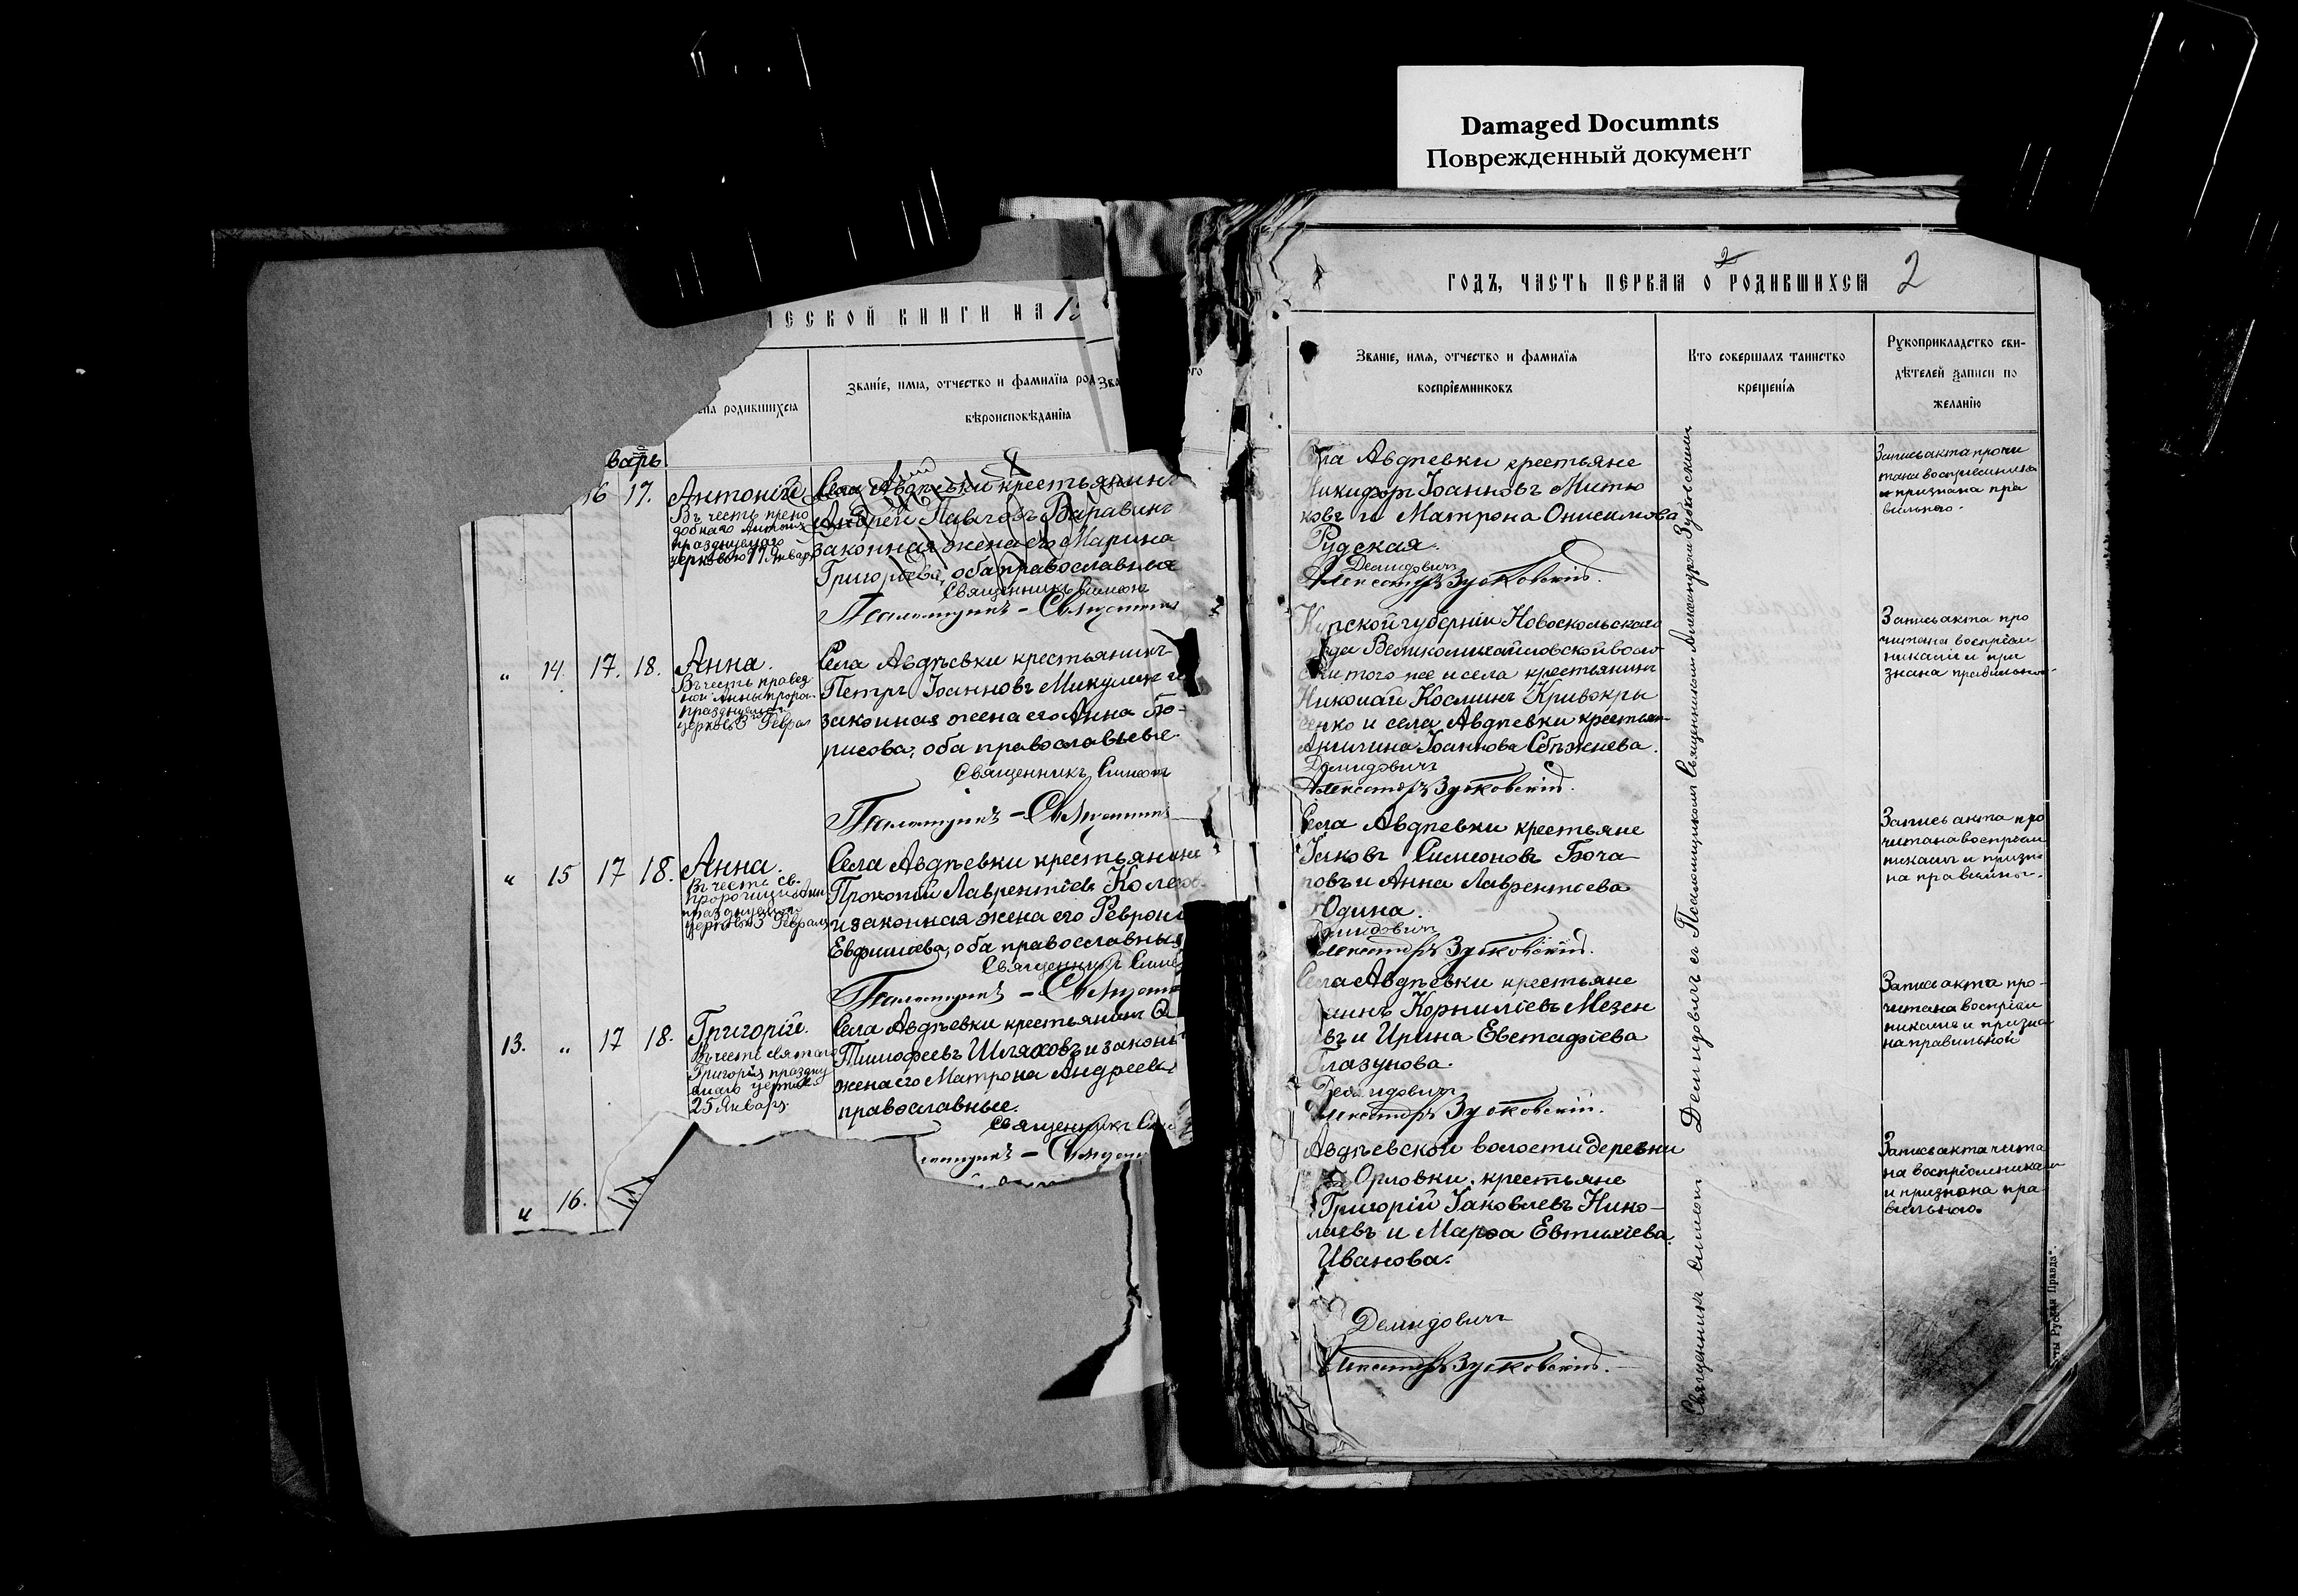 Damaged Documnts
Поврежденный документ
ЕСКОЙ КНИГИ НА 1
Званїе, имѧ, отчество и фамилїѧ род
Зва
на родившихсѧ
вѣроисповѣданїѧ
варь
16 17. Антоній
Въ честь препо
добнаго Антонія
празднуемаго
церковью 17 Января
Села Авдѣевки крестьянинъ
Андрей Павловъ Варавинъ
законная жена его Марина
Григорьева, оба православные
Священникъ Симеонъ
Псаломщикъ –
„ 14. 17. 18. Анна.
Въ честь правед
ной Анны пророч.
празднуемой
церковью 3 Феврал
Села Авдѣевки крестьянинъ
Петръ Іоанновъ Микулинъ и
законная жена его Анна Бо-
рисова, оба православные.
Священникъ Симеонъ
Псаломщикъ –
„ 15 17 18. Анна.
Въ честь св.
пророчицы Анны
празднуемой
церковью 3 Февраля
Села Авдѣевки крестьянинъ
Прокопій Лаврентіевъ
и законная жена его Феврон
Евфимiева, оба православные
Священникъ Симе
Псаломщикъ –
13. „ 17 18. Григорій.
Въ честь святаго
Григорія праздну
емаго церков
25 Января.
Села Авдѣевки крестьянинъ
Тимофеевъ Шляховъ и законн
жена его Матрона Андреева
православные.
Священникъ Си
ломщикъ –
„ 16.
ГОДЪ, ЧАСТЬ ПЕРВАѦ О РОДИВШИХСѦ 2
2
Званїе, имѧ, отчество и фамилїѧ
воспрїемниковъ
Кто совершалъ таинство
крещенїѧ
Рꙋкоприкладство сви-
дѣтелей записи по
желанїю
Села Авдѣевки крестьяне
Никифоръ Іоанновъ Митю
ковъ и Матрона Онисимова
Рудская.
Демидовичъ
Александръ Зубковскій.
Запись акта прочи
тана воспріемника
и признана пра
вильною.
Курской губерніи Новооскольскаго
уѣзда Великомихайловской воло
сти того же и села крестьянинъ
Николай Косминъ Кривокры
сенко и села Авдѣевки крестьян
Акилина Іоаннова Сбѣжнева.
Демидовичъ
Александръ Зубковскій.
Запись акта про
читана воспріем
никами и при
знана правильною.
Села Авдѣевки крестьяне
Іаковъ Симеоновъ Боча
ровъ и Анна Лаврентіева
Юдина.
Демидовичъ
Александръ Зубковскій.
Запись акта про
читана воспріем
никами и призна
на правильн.
Села Авдѣевки крестьяне
Іоаннъ Корниліевъ Мезен
евъ и Ирина Евстафіева
Глазунова.
Демидовичъ
Александръ Зубковскій.
Запись акта про-
читана воспріем
никами и призна
на правильной
Авдѣевской волости деревни
Орловки крестьяне
Григорій Іаковлевъ Нико-
лаевъ и Марѳа Евтихіева
Иванова.
Демидовичъ
Александръ Зубковскій.
Запись акта чита
на воспріемниками
и признана пра
вильною.
Священникъ Симеонъ Демидовичъ съ Псаломщикомъ Священникомъ Александромъ Зубковскимъ
ты Русская Правда".